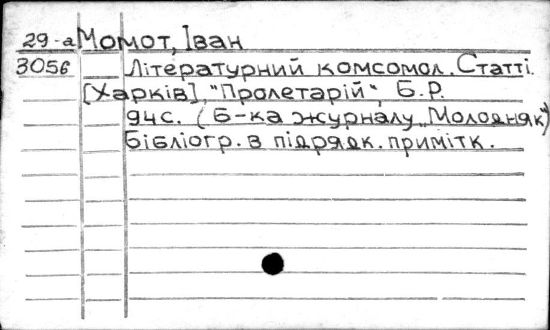 29-а Момот, Іван
3056 Літературний комсомол. Статті.
[Харків], "Пролетарій", Б.Р.
94с. (Б-ка журналу „Молодняк")
Бібліогр. в підрядк. примітк.